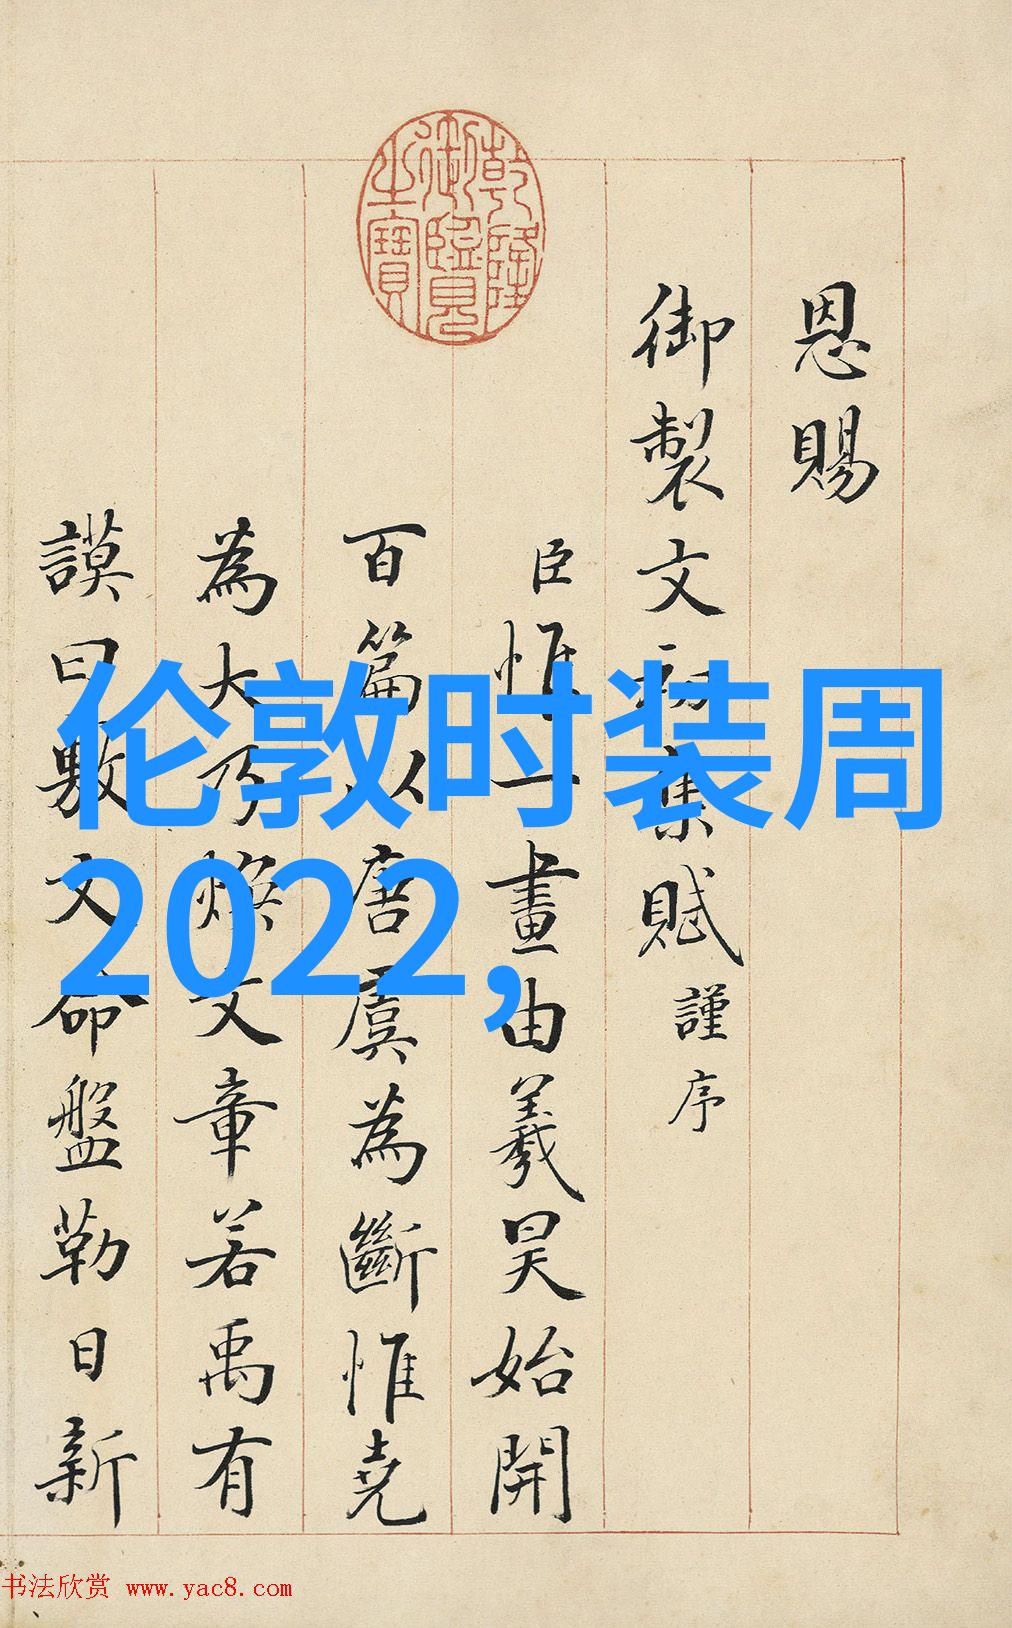 恩賜
御製文初集賦謹序
臣惟一畫由羲昊始開
百篇以唐虞為斷惟堯
為大乃煥文章若禹有
謨曰敷文命盤勒日新
乾隆御覽之寶
伦敦时装周
2022,
书法欣赏 www.yac8.com